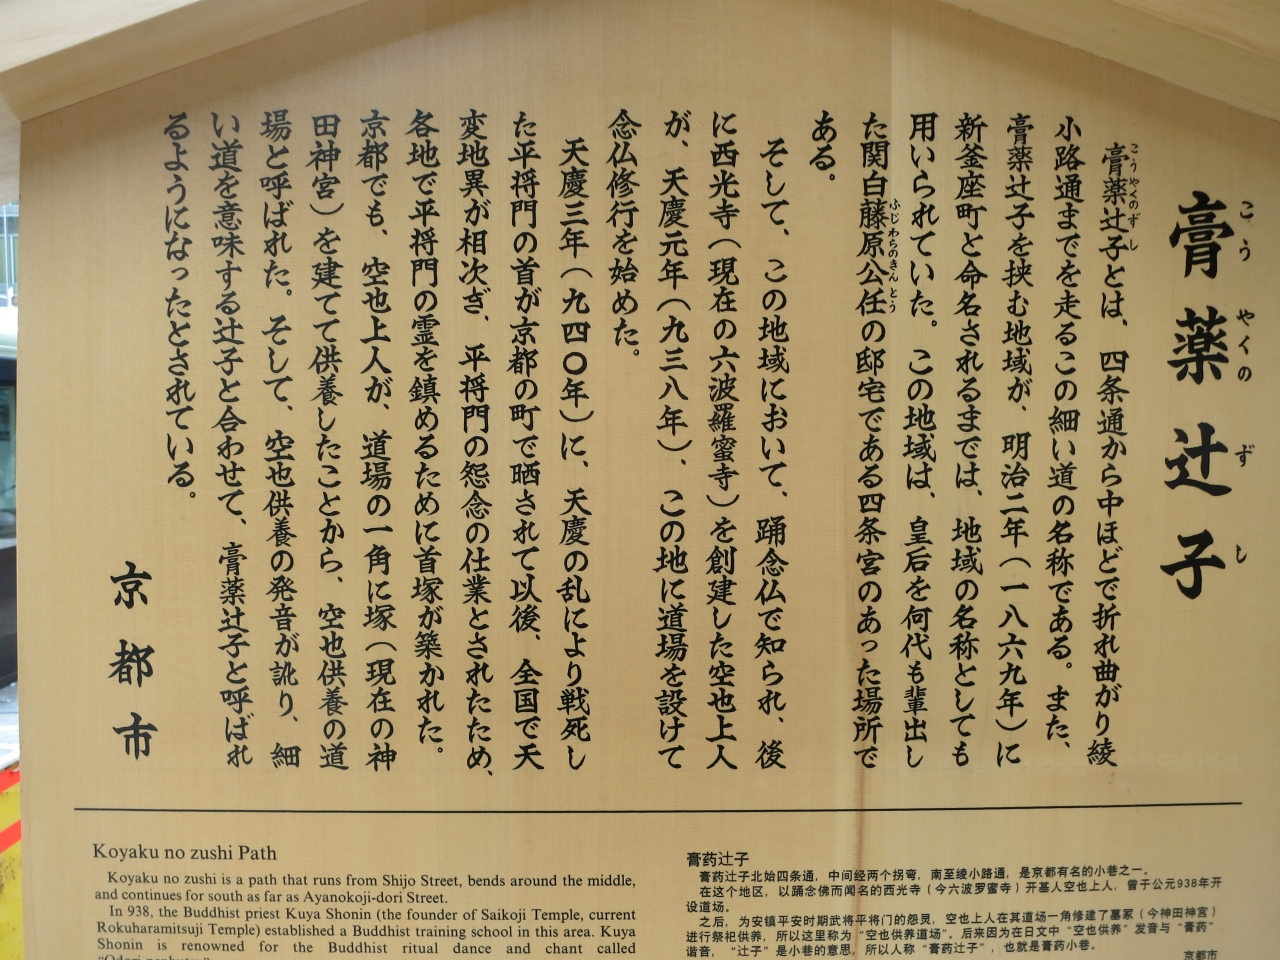 膏薬辻子
こうやくのずし
膏薬辻子とは、四条通から中ほどで折れ曲がり綾
こうやくのずし
小路通までを走るこの細い道の名称である。また、
膏薬辻子を挟む地域が、明治二年（一八六九年）に
新釜座町と命名されるまでは、地域の名称としても
用いられていた。この地域は、皇后を何代も輩出し
た関白藤原公任の邸宅である四条宮のあった場所で
ふじわらのきんとう
ある。
そして、この地域において、踊念仏で知られ、後
に西光寺（現在の六波羅蜜寺）を創建した空也上人
が、天慶元年（九三八年）、この地に道場を設けて
念仏修行を始めた。
天慶三年（九四〇年）に、天慶の乱により戦死し
た平将門の首が京都の町で晒されて以後、全国で天
変地異が相次ぎ、平将門の怨念の仕業とされたため、
各地で平将門の霊を鎮めるために首塚が築かれた。
京都でも、空也上人が、道場の一角に塚（現在の神
田神宮）を建てて供養したことから、空也供養の道
場と呼ばれた。そして、空也供養の発音が訛り、細
い道を意味する辻子と合わせて、膏薬辻子と呼ばれ
るようになったとされている。
京都市
Koyaku no zushi Path
Koyaku no zushi is a path that runs from Shijo Street, bends around the middle,
and continues for south as far as Ayanokoji-dori Street.
In 938, the Buddhist priest Kuya Shonin (the founder of Saikoji Temple, current
Rokuharamitsuji Temple) established a Buddhist training school in this area. Kuya
Shonin is renowned for the Buddhist ritual dance and chant called
膏药辻子
膏药辻子北始四条通，中间经两个拐弯，南至绫小路通，是京都有名的小巷之一。
在这个地区，以踊念佛而闻名的西光寺（今六波罗蜜寺）开基人空也上人，曾于公元938年开
设道场。
之后，为安镇平安时期武将平将门的怨灵，空也上人在其道场一角修建了墓冢（今神田神宮）
进行祭祀供养，所以这里称为“空也供养道场”。后来因为在日文中“空也供养”发音与“膏药”
谐音，“辻子”是小巷的意思，所以人称“膏药辻子”，也就是膏药小巷。
京都市